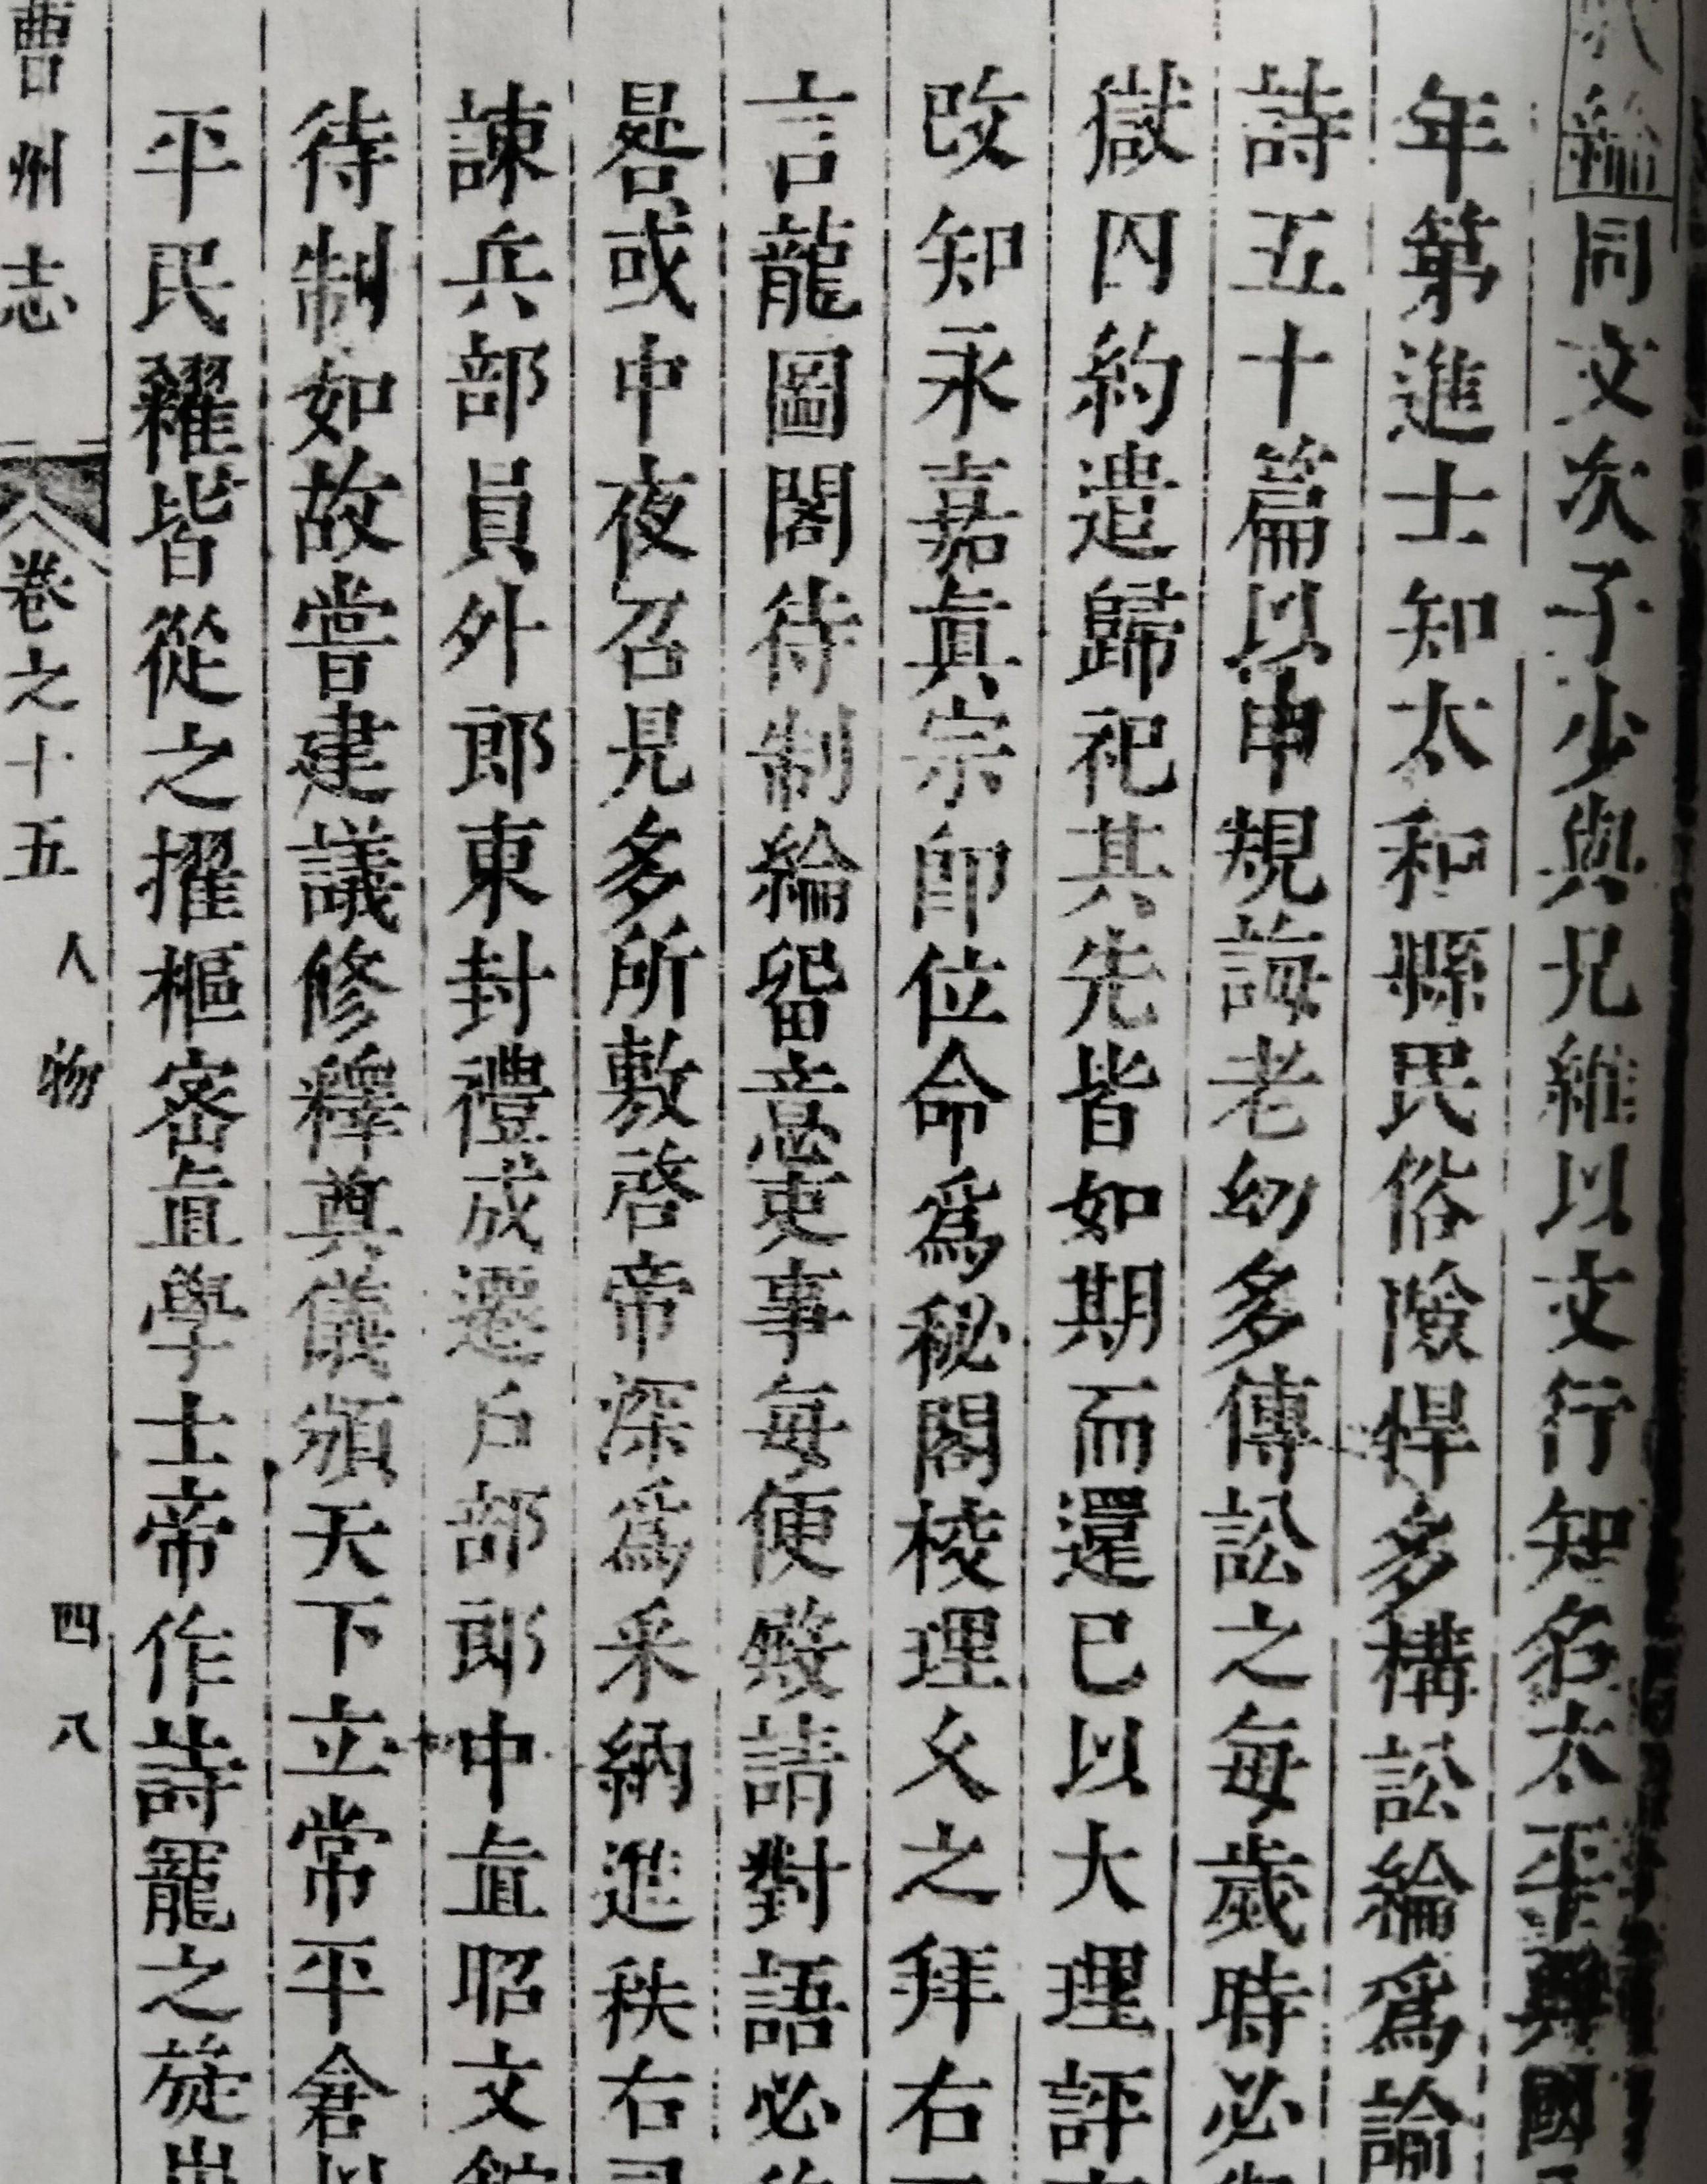 綸同文次子少與兄維以文行知名太平興國
年第進士知太和縣民俗險悍多構訟綸爲諭
詩五十篇以申規誨老幼多傳訟之每歲時必
獄囚約遣歸祀其先皆如期而還已以大理評
改知永嘉眞宗卽位命爲秘閣校理久之拜右
言龍圖閣待制綸留意吏事每便殿請對語必
晷或中夜召見多所敷啓帝深爲采納進秩右
諫兵部員外郎東封禮成遷戶部郎中直昭文
待制如故嘗建議修釋奠儀頒天下立常平倉
平民糴皆從之擢樞密直學士帝作詩寵之旋
曹州志 卷之十五 人物 四八